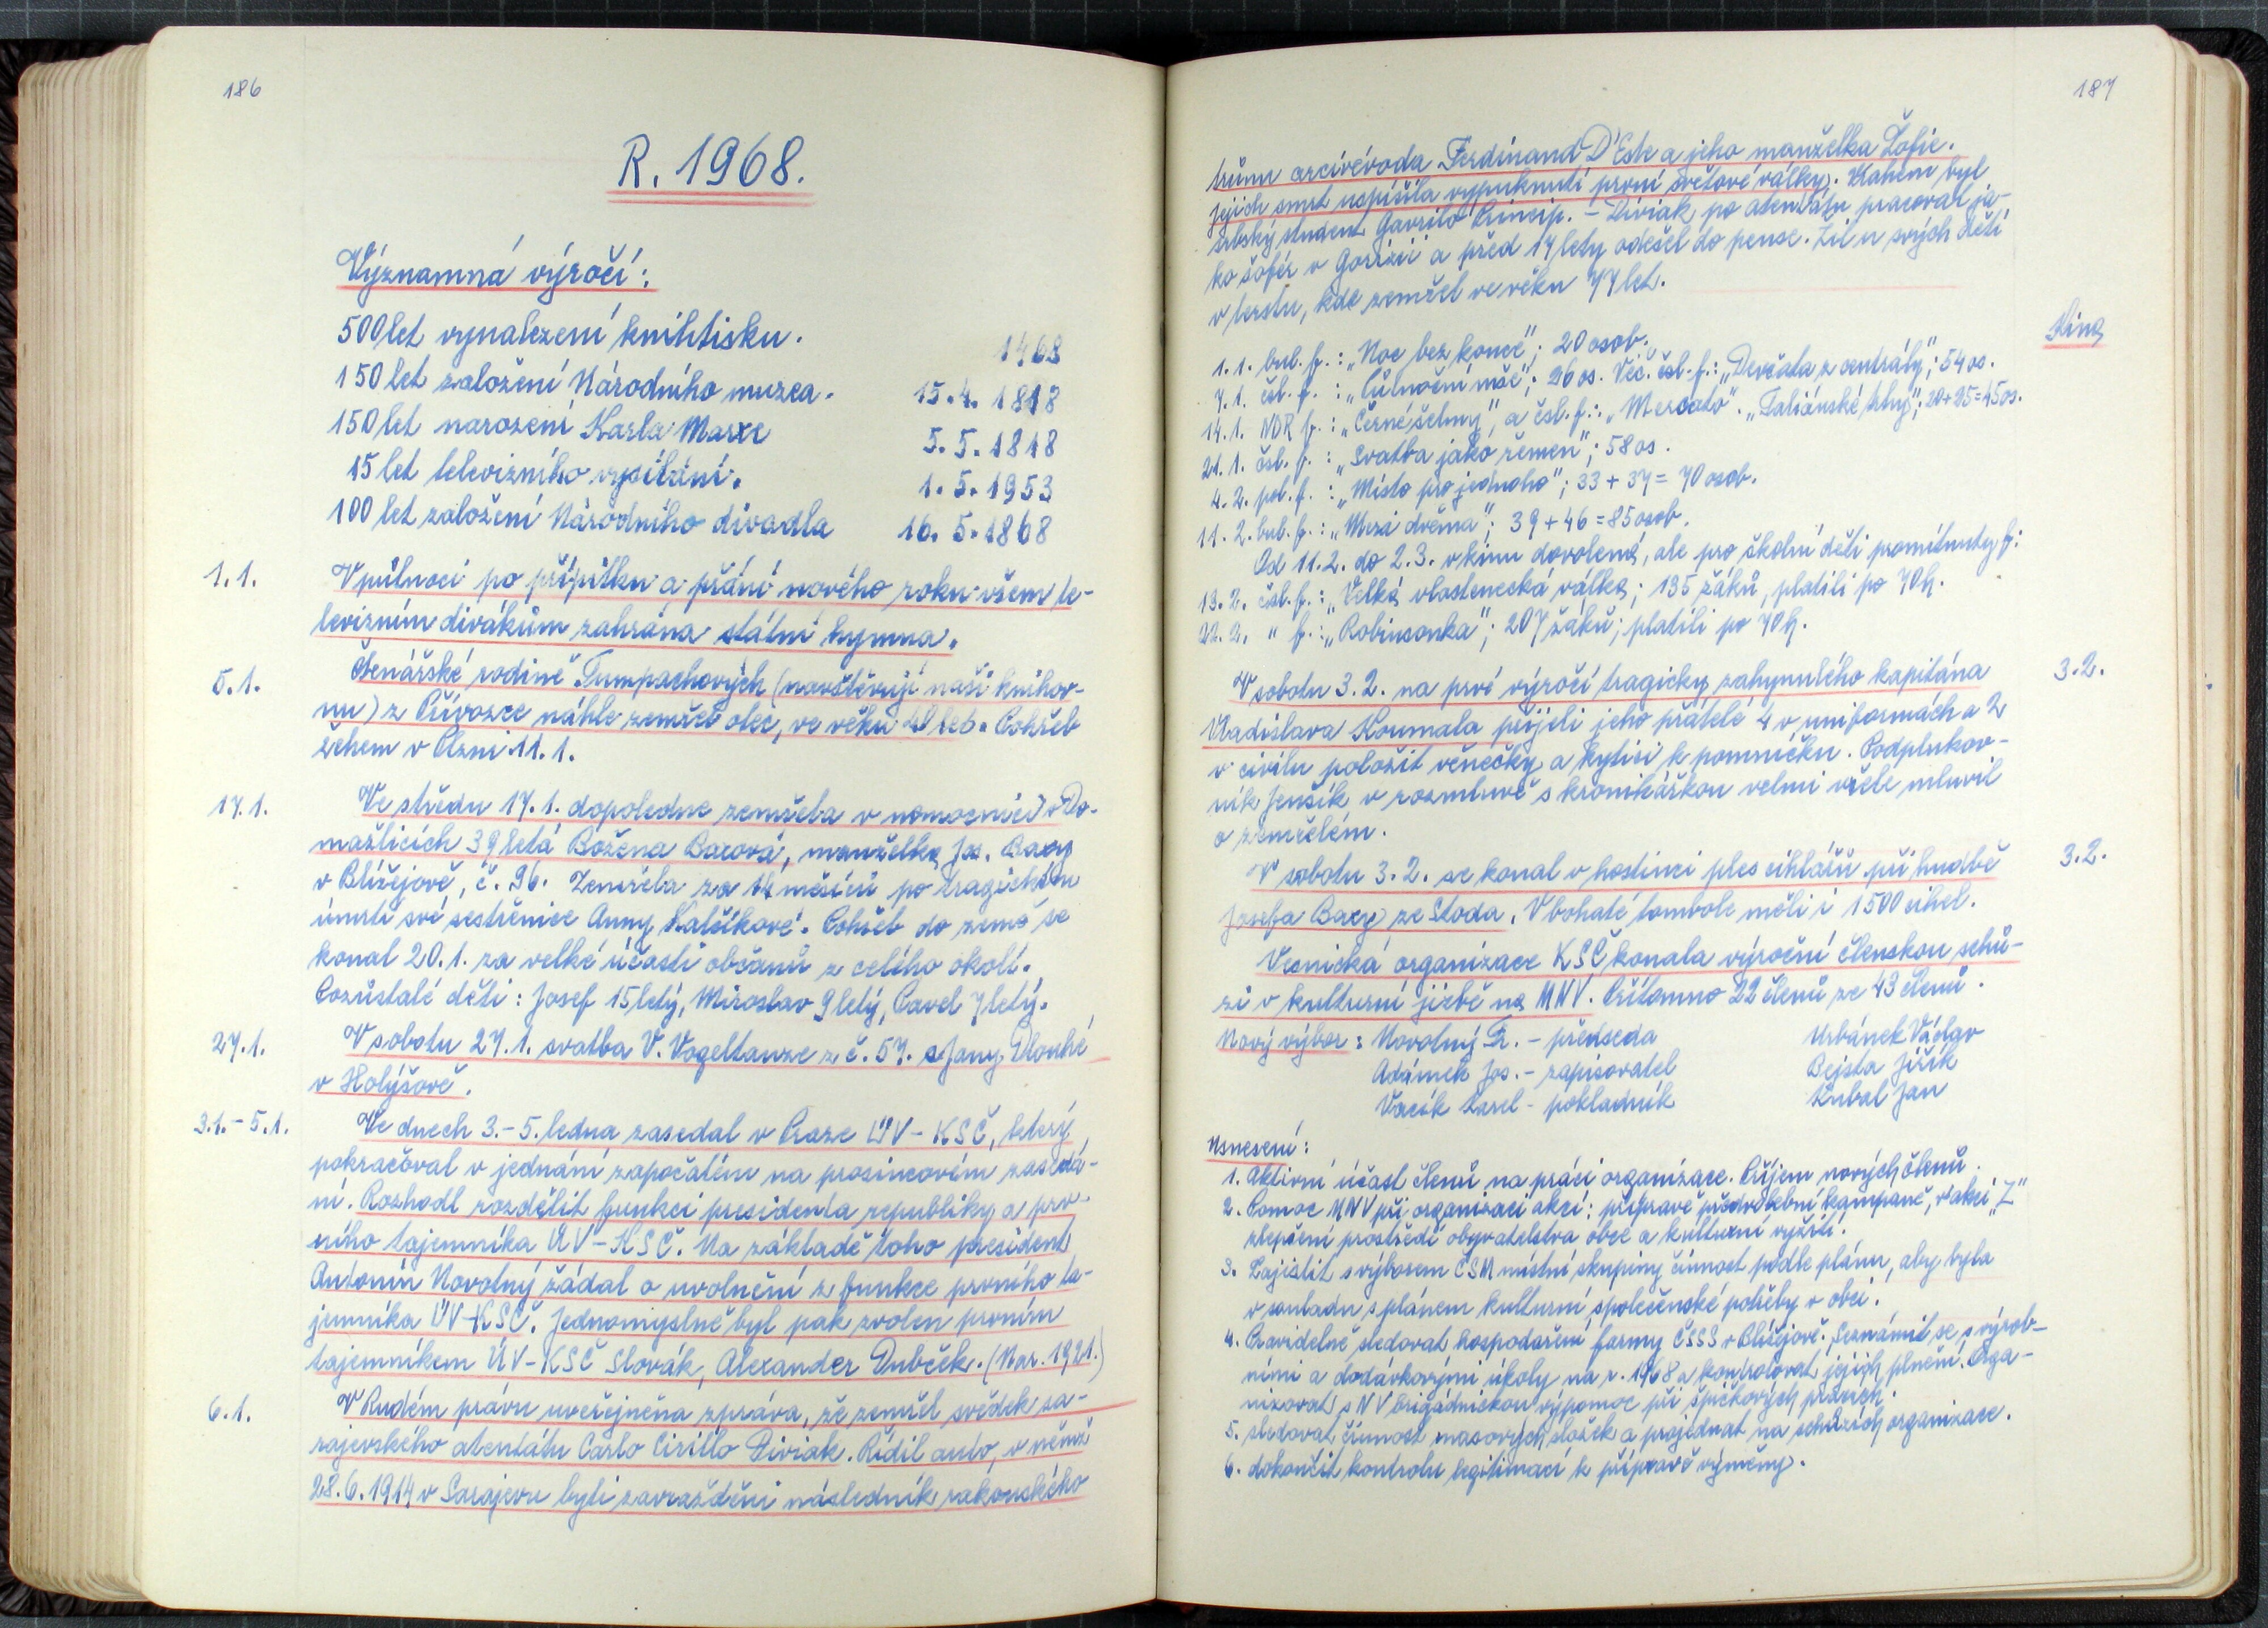 186
R. 1968.
Významná výročí:
500 let vynalezení knihtisku. 1468
150 let založení Národního muzea. 15.4. 1818
150 let narození Karla Marxe 5.5.1818
15 let televizního vysílání. 1.5.1953
100 let založení Národního divadla 16.5.1868
1.1. V půlnoci po přípitku a přání nového roku všem te-
levizním divákům zahrána státní hymna.
5.1. Čtenářské rodině Tumpachových (navštěvují naši knihov-
nu) z Přívozce náhle zemřel otec, ve věku let. Pohřeb
žehem v Plzni 11.1.
17.1. Ve středu 17.1. dopoledne zemřela v nemocnici v Do-
mažlicích 39letá Božena Baxová, manželka Jos. Baxy
v Blížejově, č. 96. Zemřela za měsíců po tragickém
úmrtí své sestřenice Anny Kalčíkové. Pohřeb do země se
konal 20.1. za velké účasti občanů z celého okolí.
Pozůstalé děti: Josef 15letý, Miroslav 9letý, Pavel 7letý.
27.1. V sobotu 27.1. svatba V. Vogeltanze z č. 57. s Jany Dlouhé
v Holýšově.
3.1.-5.1. Ve dnech 3.-5. ledna zasedal v Praze ÚV-KSČ, který
pokračoval v jednání započatém na prosincovém zasedá-
ní. Rozhodl rozdělit funkci presidenta republiky a prv-
ního tajemníka ÚV-KSČ. Na základě toho president
Antonín Novotný žádal o uvolnění z funkce prvního ta-
jemníka ÚV-KSČ. Jednomyslně byl pak zvolen prvním
tajemníkem ÚV-KSČ Slovák, Alexander Dubček. (Nar. 1921.)
6.1. V Rudém právu uveřejněna zpráva, že zemřel svědek sa-
rajevského atentátu Carlo Cirillo Diviak. Řídil auto, v němž
28.6.1914 v Sarajevu byli zavražděni následník rakouského
187
trůnu arcivévoda Ferdinand D'Este a jeho manželka Žofie.
Jejich smrt uspíšila vypuknutí první světové války. Vrahem byl
srbský student Gavrilo Princip. - Diviak po atentátu pracoval ja-
ko šofér v Gorizii a před 17 lety odešel do pense. Žil u svých dětí
v Terstu, kde zemřel ve věku 77 let.
Kina
1.1. bul. f.: "Noc bez konce"; 20 osob.
7.1. čsl. f.: "Půlnoční mše"; 26 os. Več. čsl. f.: "Děvčata z centrály"; 54 os.
14.1. NDR f.: "Černé šelmy", a čsl. f.: "Mercato". "Taliánské trhy"; 20+25=45 os.
21.1. čsl. f.: "Svatba jako řemen"; 58 os.
4.2. pol. f.: "Místo pro jednoho"; 33+37=70 osob.
11.2. bul. f.: "Mezi dvěma"; 39+46=85 osob.
Od 11.2. do 2.3. v kinu dovolená, ale pro školní děti promítnuty f:
13.2. čsl. f.: "Velká vlastenecká válka; 135 žáků, platili po 70h.
22.2. " f.: "Robinsonka"; 207 žáků; platili po 70h.
V sobotu 3.2. na prvé výročí tragicky zahynulého kapitána 3.2.
Vladislava Koumala přijeli jeho přátelé 4 v uniformách a 2
v civilu položit věnečky a kytici k pomníčku. Podplukov-
ník Jenšík v rozmluvě s kronikářkou velmi vřele mluvil
o zemřelém.
V sobotu 3.2. se konal v hostinci ples cihlářů při hudbě 3.2.
Josefa Baxy ze Stoda. V bohaté tombole měli i 1500 cihel.
Vesnická organizace KSČ konala výroční členskou schů-
zi v kulturní jizbě na MNV. Přítomno 22 členů ze 43 členů.
Nový výbor: Novotný Fr. - předseda Urbánek Václav
Adámek Jos. - zapisovatel Bejsta Jiřík
Vacík Karel - pokladník Kubal Jan
Usnesení:
1. Aktivní účast členů na práci organizace. Příjem nových členů.
2. Pomoc MNV při organizaci akcí: přípravě předvolební kampaně, v akci "Z"
zlepšení prostředí obyvatelstva obce a kulturní vyžití.
3. Zajistit s výborem ČSM místní skupiny činnost podle plánu, aby byla
v souladu s plánem kulturní, společenské potřeby v obci.
4. Pravidelně sledovat hospodaření farmy ČSSS v Blížejově. Seznámit se s výrob-
ními a dodávkovými úkoly na r. 1968 a kontrolovat jejich plnění. Orga-
nizovat s NV brigádnickou výpomoc při špičkových pracích.
5. sledovat činnost masových složek a projednat na schůzích organizace.
6. dokončit kontrolu legitimací k přípravě výměny.